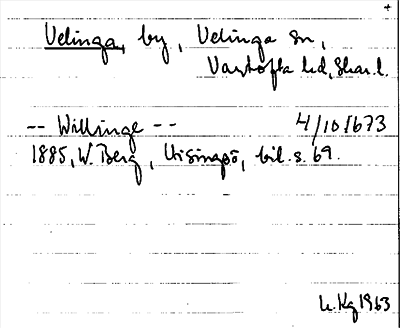 +
Velinga, by, Velinga sn,
Vartofta hd, Skar. l.
-- Willinge -- 4/10 1673
1885, W. Berg, Visingsö, bil. s. 69.
L. Kg 1963